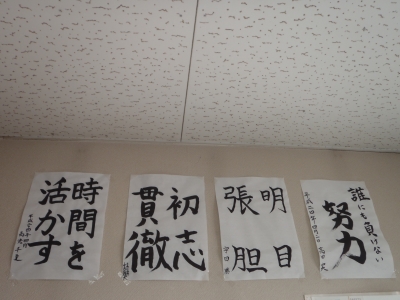 誰にも負けない
努力
明目
張胆
初志
貫徹
時間を
活かす